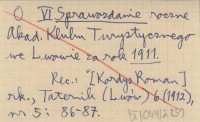 O VI Sprawozdanie roczne
Akad. Klubu Turystycznego
we Lwowie za rok 1911.
Rec.: [Kordys Roman]
rk., Taternik (Lwów) 6 (1912),
nr 5: 86-87.